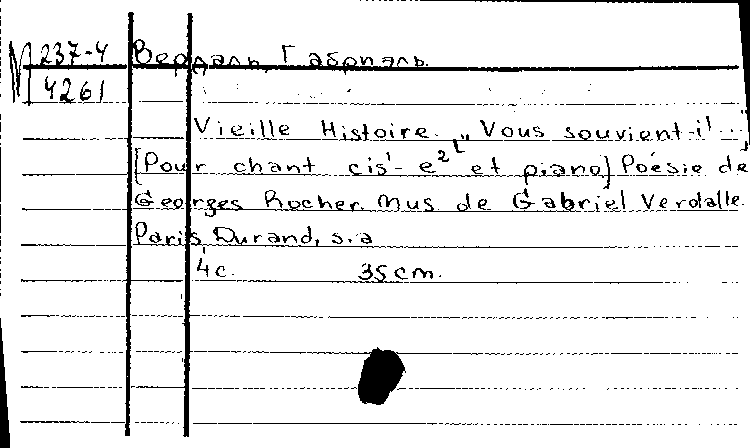 М 237-4 Вердаль, Габриэль.
4261
Vieille Histoire. [„Vous souvient-il...]
[Pour chant cis¹- e² et piano] Poésie de
Georges Rocher. Mus de Gabriel Verdalle.
Paris, Durand, s.a
4 c. 35 cm.